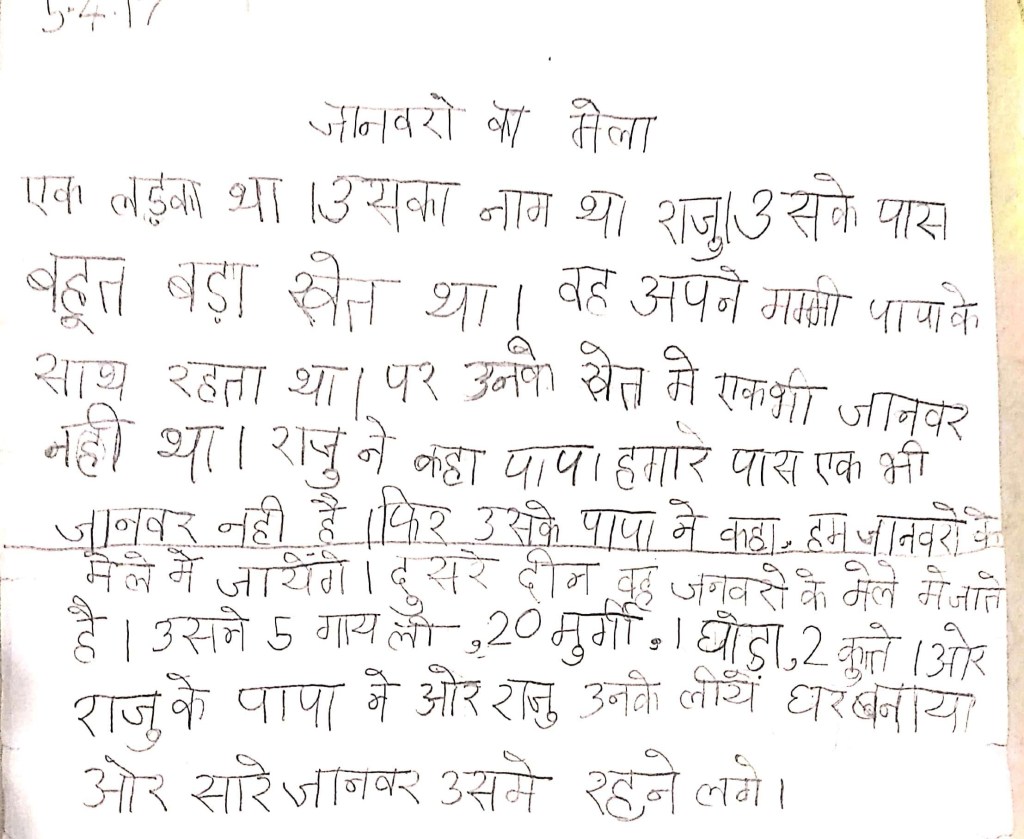 5.4.17
जानवरो का मेला
एक लड़का था । उसका नाम था राजु। उसके पास
बहूत बड़ा खेत था । वह अपने मम्मी पापा के
साथ रहता था । पर उनके खेत मे एकभी जानवर
नही था । राजु ने कहा पापा हमारे पास एक भी
जानवर नही है । फिर उसके पापा ने कहा, हम जानवरो के
मेले मे जायेंगे । दुसरे दीन वह जनवरो के मेले मे जाते
है । उसने 5 गाय ली ,20 मुर्गी , 1 घोड़ा, 2 कुत्ते । ओर
राजु के पापा ने ओर राजु उनके लीयें घर बनाया
ओर सारे जानवर उसमे रहने लगे ।